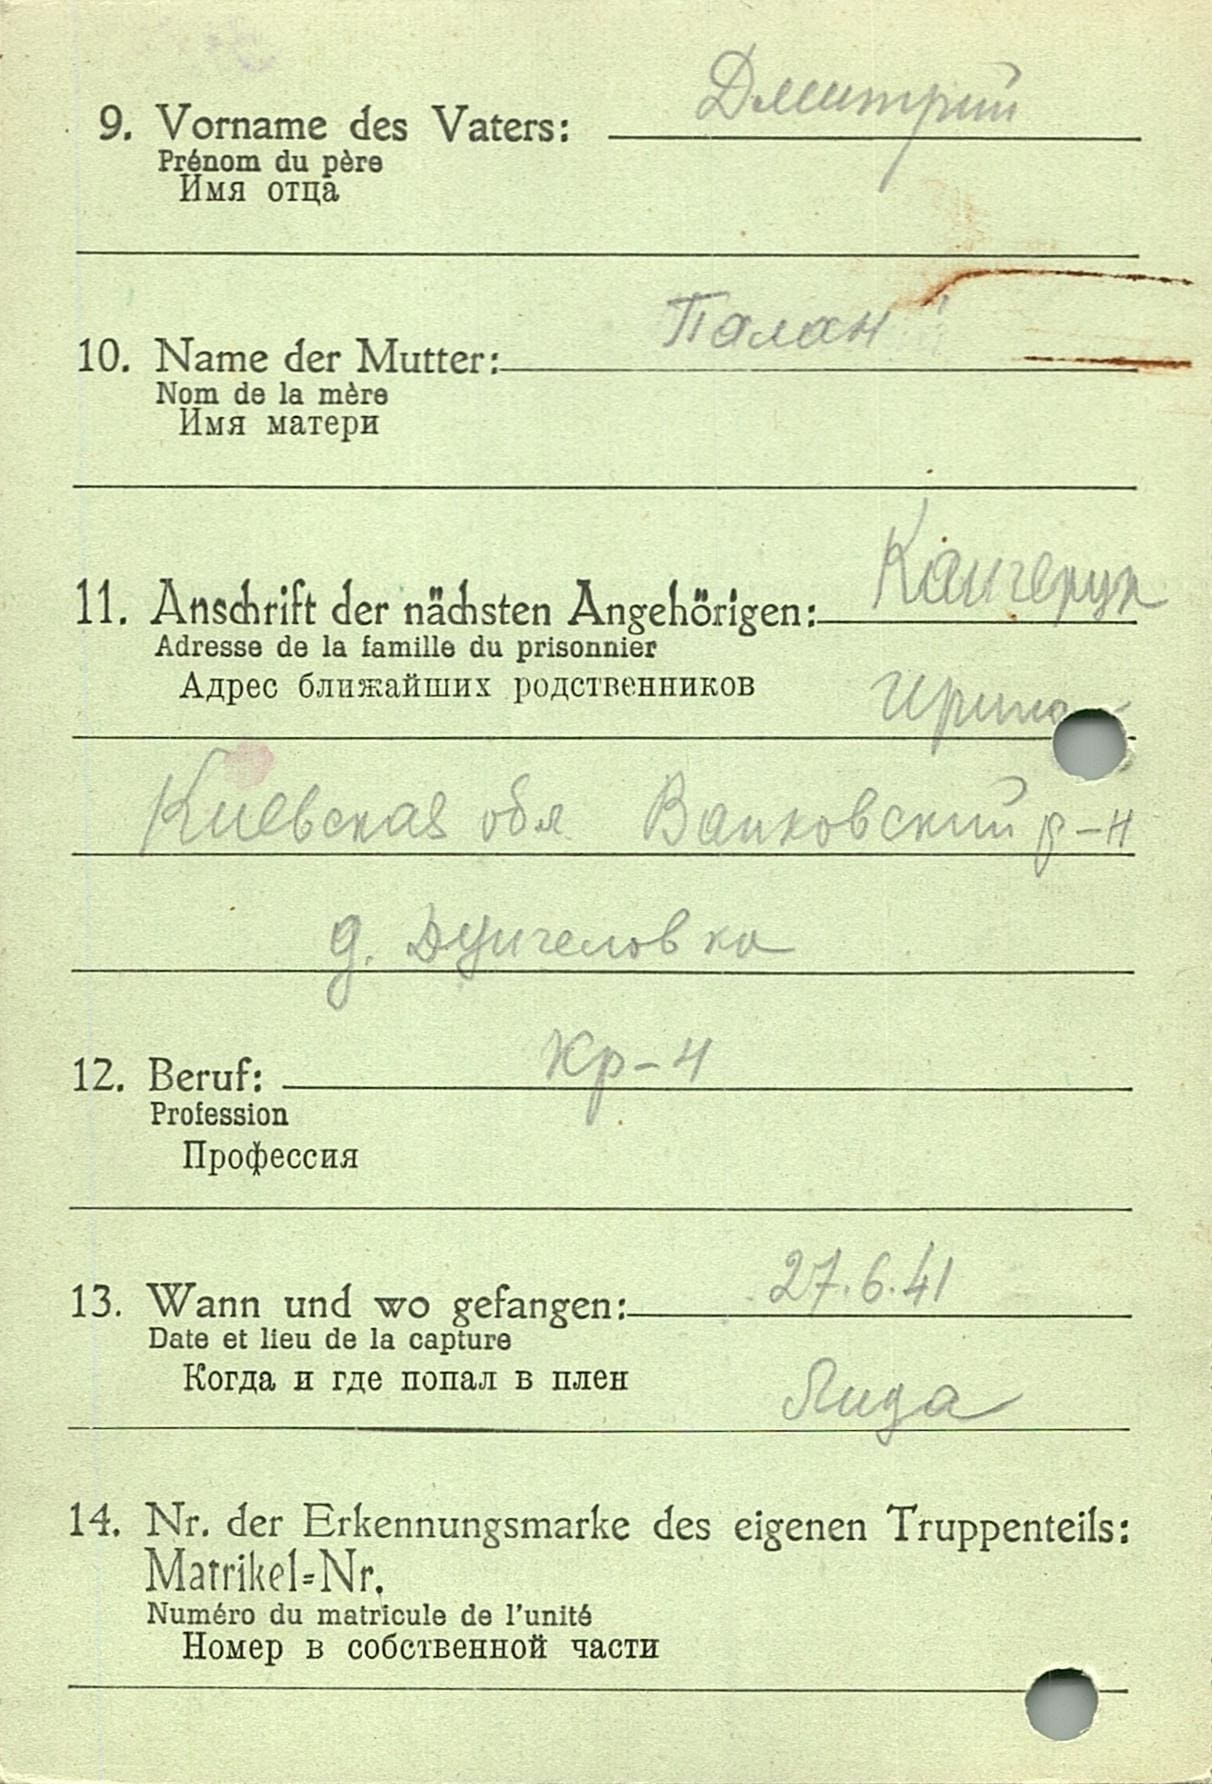 9. Vorname des Vaters: Дмитрий
Prénom du père
Имя отца
10. Name der Mutter: Палан
Nom de la mère
Имя матери
11. Anschrift der nächsten Angehörigen:
Adresse de la famille du prisonnier
Адрес ближайших родственников
Киевская обл р-н
д.
12. Beruf: Кр-н
Profession
Профессия
13. Wann und wo gefangen: 27.6.41
Date et lieu de la capture
Когда и где попал в плен
Лида
14. Nr. der Erkennungsmarke des eigenen Truppenteils:
Matrikel=Nr.
Numéro du matricule de l'unité
Номер в собственной части